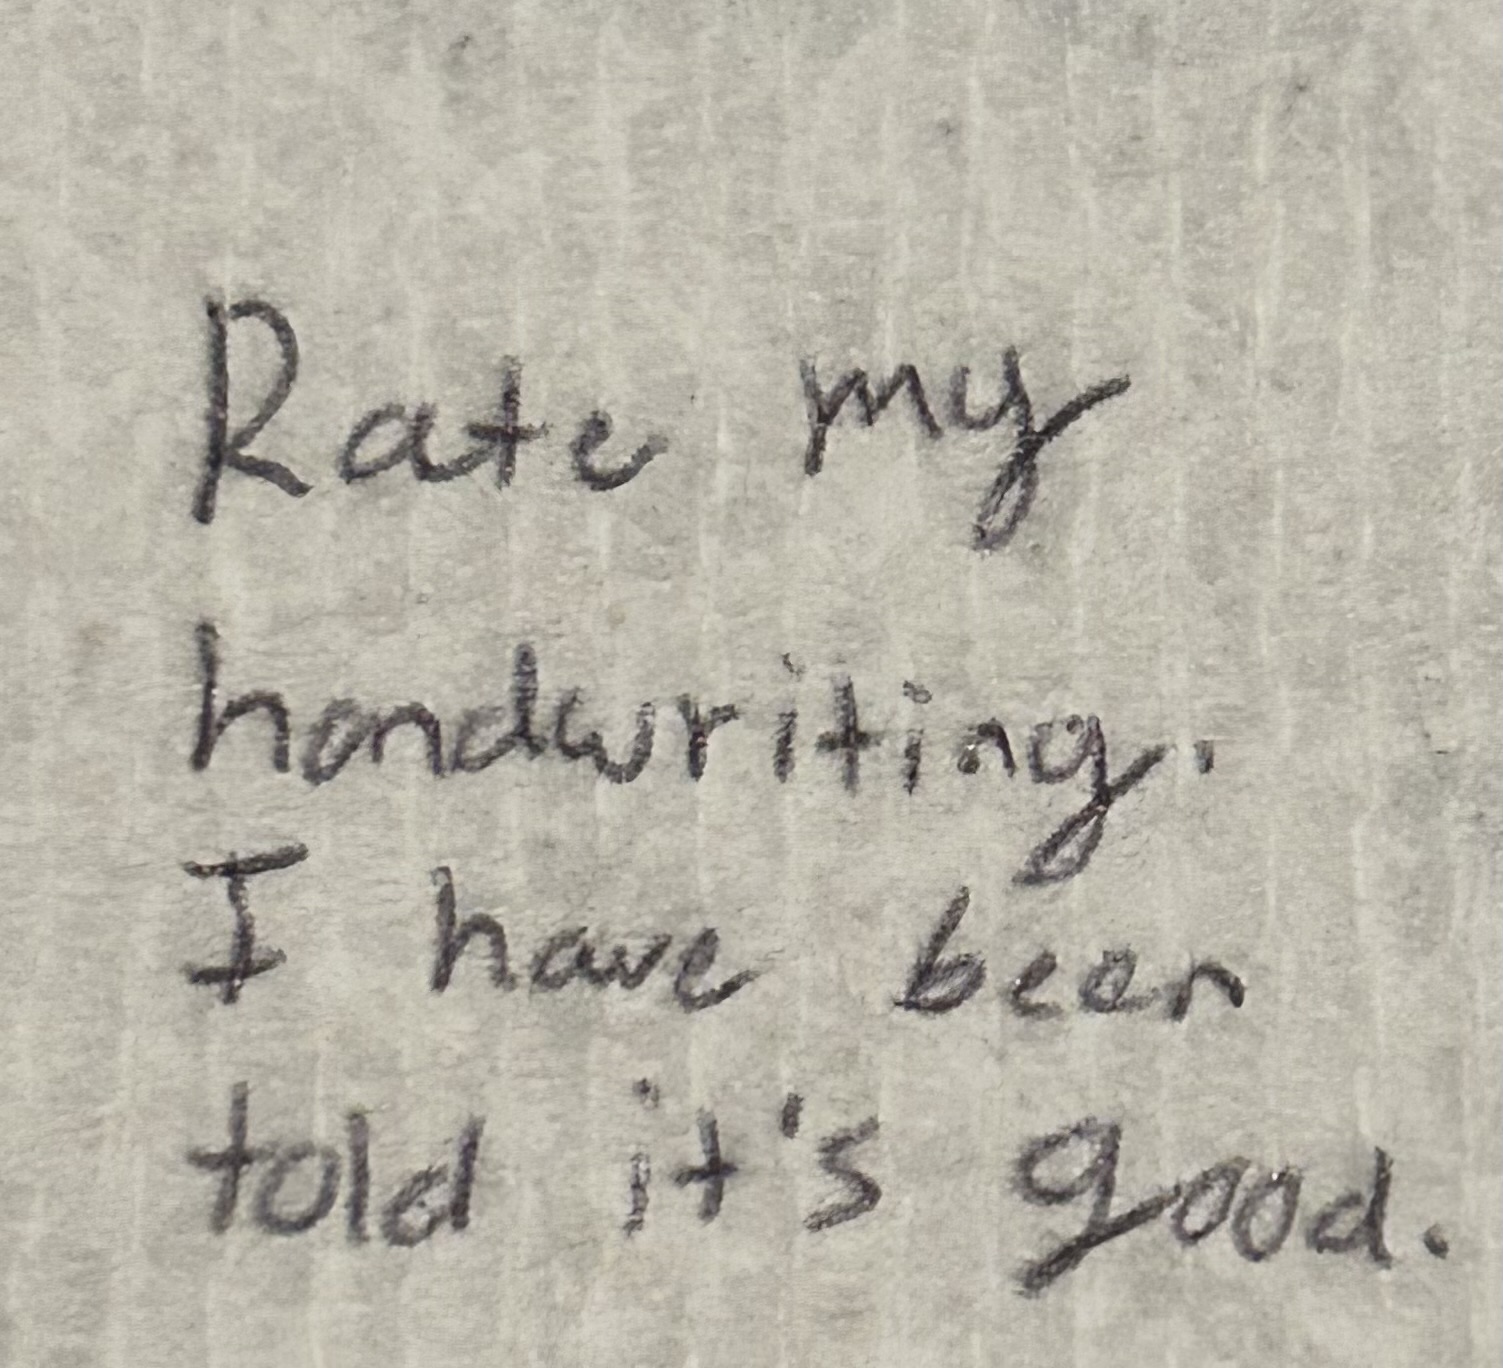 Rate my
handwriting.
I have been
told it's good.